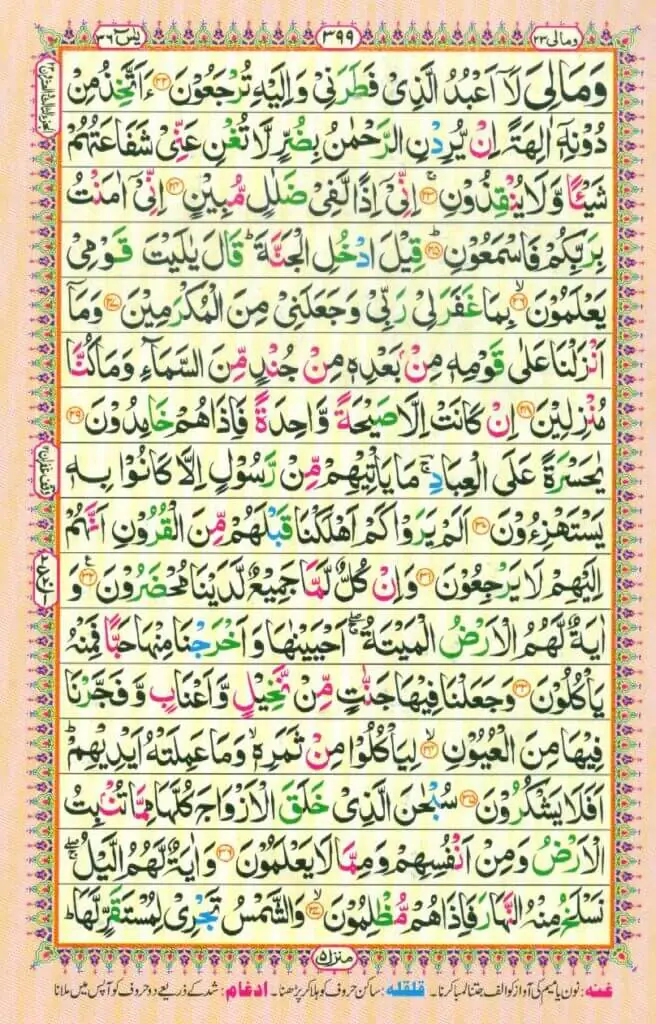 ومالی ٢٣
٣٩٩
یٰسٓ ٣٦
وَمَا لِیَ لَاۤ اَعْبُدُ الَّذِیْ فَطَرَنِیْ وَاِلَیْهِ تُرْجَعُوْنَ ﴿٢٢﴾ ءَاَتَّخِذُ مِنْ
دُوْنِهٖۤ اٰلِهَةً اِنْ یُّرِدْنِ الرَّحْمٰنُ بِضُرٍّ لَّا تُغْنِ عَنِّیْ شَفَاعَتُهُمْ
شَیْـًٔا وَّلَا یُنْقِذُوْنِ ﴿٢٣﴾ اِنِّیْۤ اِذًا لَّفِیْ ضَلٰلٍ مُّبِیْنٍ ﴿٢٤﴾ اِنِّیْۤ اٰمَنْتُ
بِرَبِّكُمْ فَاسْمَعُوْنِ ﴿٢٥﴾ قِیْلَ ادْخُلِ الْجَنَّةَ ؕ قَالَ یٰلَیْتَ قَوْمِیْ
یَعْلَمُوْنَ ﴿٢٦﴾ بِمَا غَفَرَ لِیْ رَبِّیْ وَجَعَلَنِیْ مِنَ الْمُكْرَمِیْنَ ﴿٢٧﴾ وَمَاۤ
اَنْزَلْنَا عَلٰی قَوْمِهٖ مِنْۢ بَعْدِهٖ مِنْ جُنْدٍ مِّنَ السَّمَآءِ وَمَا كُنَّا
مُنْزِلِیْنَ ﴿٢٨﴾ اِنْ كَانَتْ اِلَّا صَیْحَةً وَّاحِدَةً فَاِذَا هُمْ خٰمِدُوْنَ ﴿٢٩﴾
یٰحَسْرَةً عَلَی الْعِبَادِ ۚ مَا یَاْتِیْهِمْ مِّنْ رَّسُوْلٍ اِلَّا كَانُوْا بِهٖ
یَسْتَهْزِءُوْنَ ﴿٣٠﴾ اَلَمْ یَرَوْا كَمْ اَهْلَكْنَا قَبْلَهُمْ مِّنَ الْقُرُوْنِ اَنَّهُمْ
اِلَیْهِمْ لَا یَرْجِعُوْنَ ﴿٣١﴾ وَاِنْ كُلٌّ لَّمَّا جَمِیْعٌ لَّدَیْنَا مُحْضَرُوْنَ ﴿٣٢﴾ وَ
اٰیَةٌ لَّهُمُ الْاَرْضُ الْمَیْتَةُ ۖۚ اَحْیَیْنٰهَا وَاَخْرَجْنَا مِنْهَا حَبًّا فَمِنْهُ
یَاْكُلُوْنَ ﴿٣٣﴾ وَجَعَلْنَا فِیْهَا جَنّٰتٍ مِّنْ نَّخِیْلٍ وَّاَعْنَابٍ وَّفَجَّرْنَا
فِیْهَا مِنَ الْعُیُوْنِ ﴿٣٤﴾ لِیَاْكُلُوْا مِنْ ثَمَرِهٖ ۙ وَمَا عَمِلَتْهُ اَیْدِیْهِمْ ؕ
اَفَلَا یَشْكُرُوْنَ ﴿٣٥﴾ سُبْحٰنَ الَّذِیْ خَلَقَ الْاَزْوَاجَ كُلَّهَا مِمَّا تُنْۢبِتُ
الْاَرْضُ وَمِنْ اَنْفُسِهِمْ وَمِمَّا لَا یَعْلَمُوْنَ ﴿٣٦﴾ وَاٰیَةٌ لَّهُمُ الَّیْلُ ۖۚ
نَسْلَخُ مِنْهُ النَّهَارَ فَاِذَا هُمْ مُّظْلِمُوْنَ ﴿٣٧﴾ وَالشَّمْسُ تَجْرِیْ لِمُسْتَقَرٍّ لَّهَا ؕ
منزل ٥
غنه : نون یا میم کی آواز کو الف جتنا لمبا کرنا۔ قلقله : ساکن حروف کو ہلا کر پڑھنا۔ ادغام : شد کے ذریعے دو حروف کو آپس میں ملانا